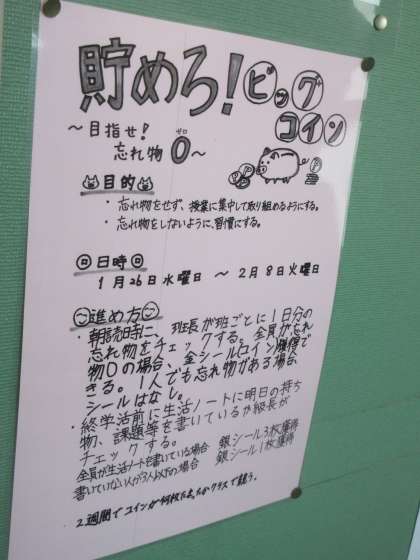 貯めろ!ビッグ
コイン
~目指せ!
ゼロ
忘れ物0~
目的
・忘れ物をせず、授業に集中して取り組めるようにする。
・忘れ物をしないように、習慣にする。
日時
1月26日水曜日 ~ 2月8日火曜日
進め方
・朝読書時に、班長が班ごとに1日分の
忘れ物をチェックする。全員が忘れ
物0の場合、金シール(コイン)獲得で
きる。1人でも忘れ物がある場合、
シールはなし。
・終学活前に生活ノートに明日の持ち
物、課題等を書いているか級長が
チェックする。
全員が生活ノートを書いている場合 銀シール3枚獲得
書いていない人が3人以下の場合 銀シール1枚獲得
2週間でコインが何枚たまったかクラスで競う。